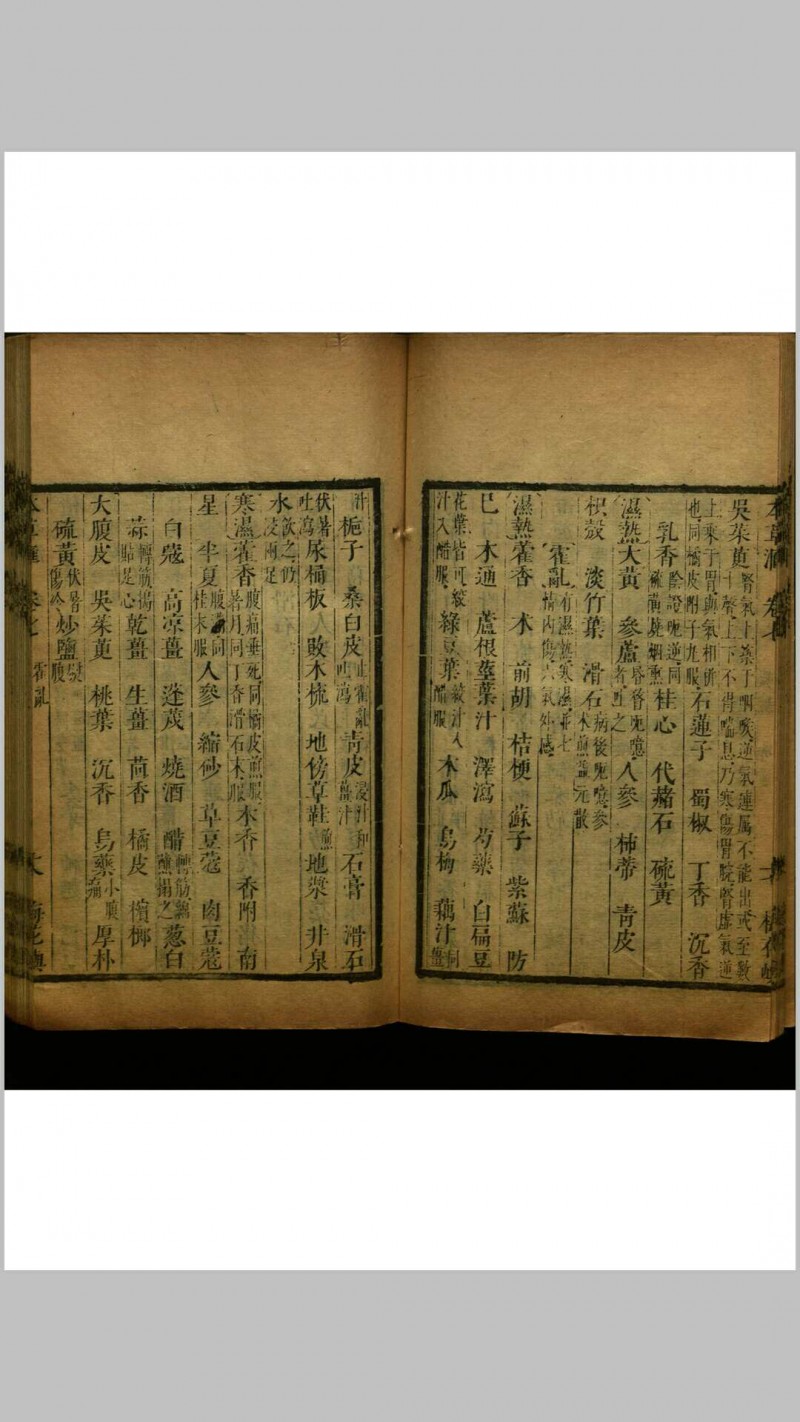 吳茱萸 腎氣上築于咽喉逆氣連属不能出或至數十聲上下不得喘息乃寒傷腎脘腎虛氣逆
上乘于胃與氣相併 石蓮子 蜀椒 丁香 沉香
也同橘皮附子丸服
乳香 陰證呃逆同硫黃燒烟熏 桂心 代赭石 硫黃
濕熱大黃 參蘆 人參 柿蒂 青皮
枳殼 淡竹葉 滑石 病後呃噫參术煎益元散
霍亂 有濕熱寒濕并七情內傷六氣外感
濕熱藿香 术 前胡 桔梗 蘇子 紫蘇 防
巳 木通 蘆根莖葉汁 澤瀉 芍藥 白扁豆
花葉皆可絞汁入醋服 綠豆葉 絞汁入醋服 木瓜 烏梅 藕汁 同薑
汁 梔子 桑白皮 止霍亂吐瀉 青皮 浸汁和薑汁 石膏 滑石
伏暑吐瀉 尿桶板 敗木梳 地傍草鞋 煎 地漿 井泉
水 飲之仍浸兩足
寒濕藿香 腹痛垂死同橘皮煎服暑月同丁香滑石末服 木香 香附 南
星 半夏 桂末服 人參 縮砂 草豆蔻 肉豆蔻
白蔻 高涼薑 蓬莪 燒酒 醋 葱白
蒜 轉筋搗貼足心 乾薑 生薑 茴香 橘皮 檳榔
大腹皮 吳茱萸 桃葉 沉香 烏藥 小腹痛 厚朴
硫黃 伏暑傷冷 炒鹽 熨腹
霍亂